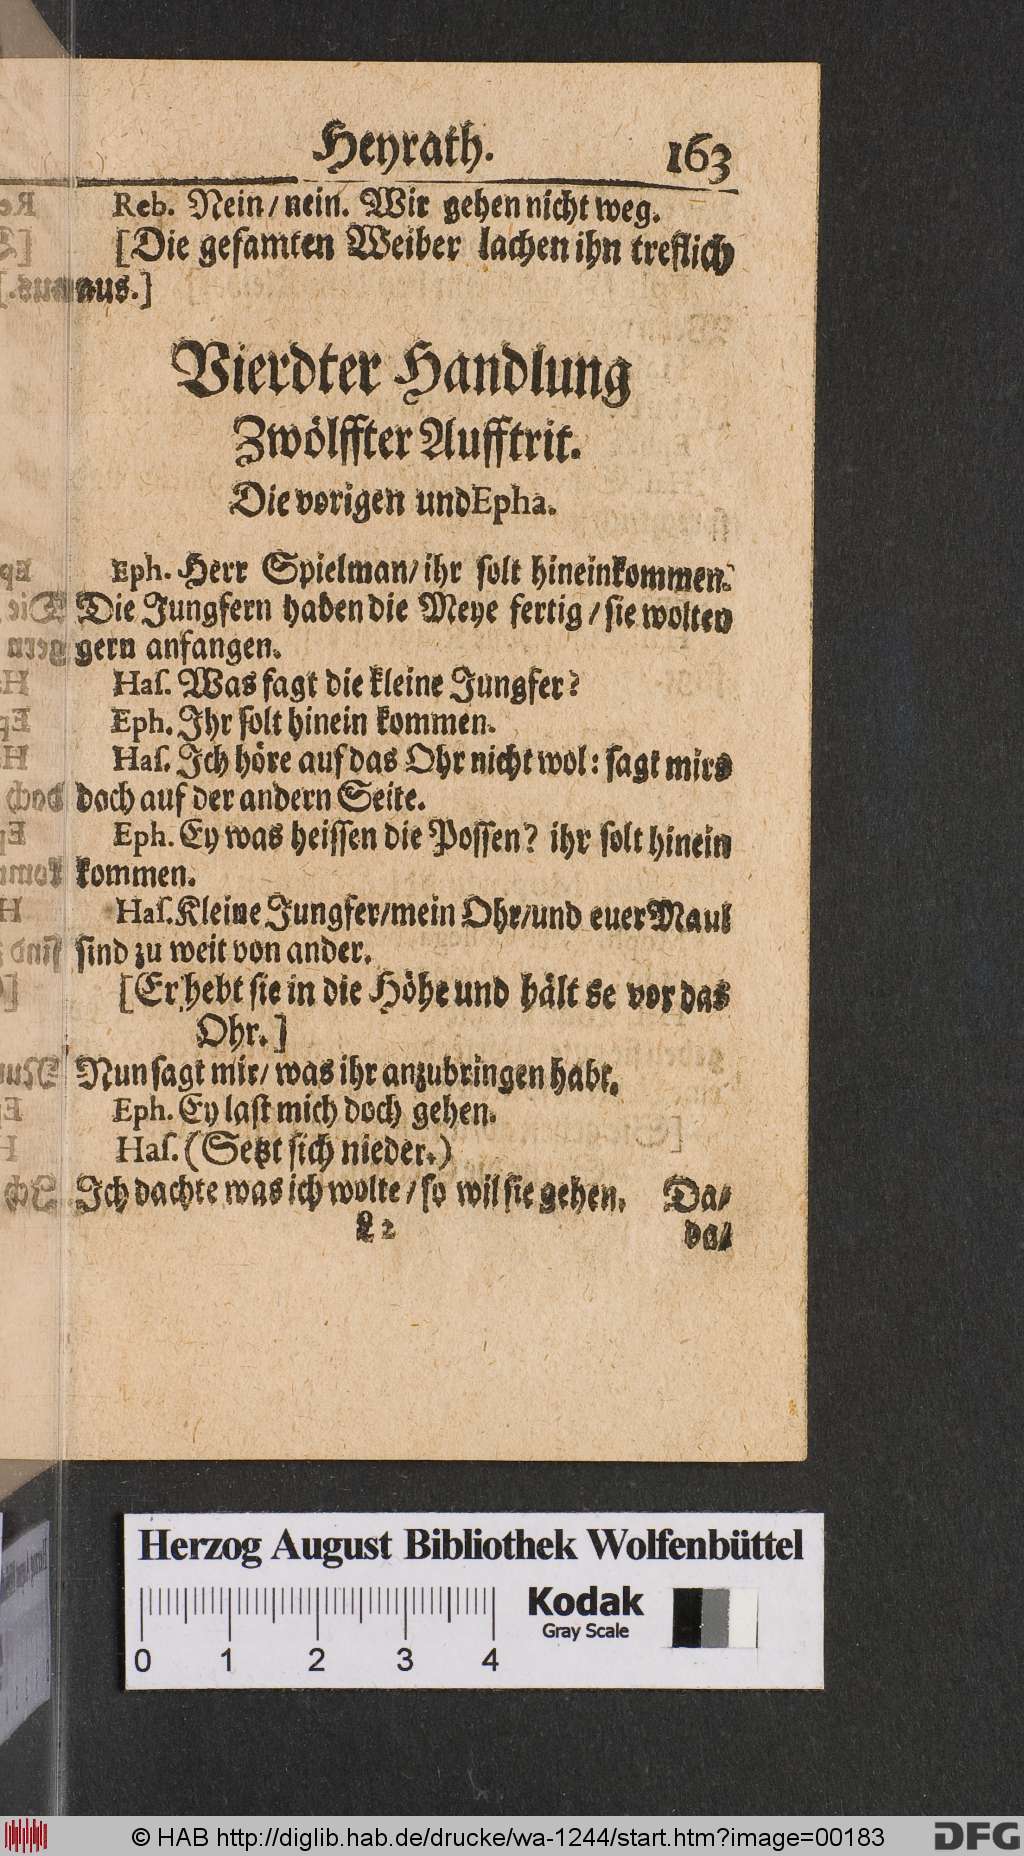 Heyrath. 163
Reb. Nein/nein. Wir gehen nicht weg.
[Die gesamten Weiber lachen ihn treflich
aus.]
Vierdter Handlung
Zwölffter Aufftrit.
Die vorigen und Epha.
Eph. Herr Spielman/ihr solt hineinkommen.
Die Jungfern haben die Meye fertig/sie wolten
gern anfangen.
Has. Was sagt die kleine Jungfer?
Eph. Ihr solt hinein kommen.
Has. Ich höre auf das Ohr nicht wol: sagt mirs
doch auf der andern Seite.
Eph. Ey was heissen die Possen? ihr solt hinein
kommen.
Has. Kleine Jungfer/mein Ohr/und euer Maul
sind zu weit von ander.
[Er hebt sie in die Höhe und hält se vor das
Ohr.]
Nun sagt mir/was ihr anzubringen habt.
Eph. Ey last mich doch gehen.
Has. (Setzt sich nieder.)
Ich dachte was ich wolte/so wil sie gehen. Da/
L 2 da/
Herzog August Bibliothek Wolfenbüttel
Kodak
Gray Scale
0 1 2 3 4
© HAB http://diglib.hab.de/drucke/wa-1244/start.htm?image=00183
DFG